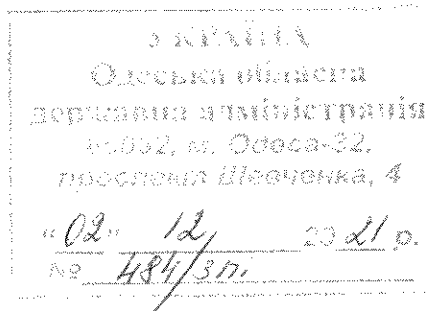 УКРАЇНА
Одеська обласна
державна адміністрація
65032, м. Одеса-32,
проспект Шевченка, 4
"02" 12 2021 р.
№ 484/3п.